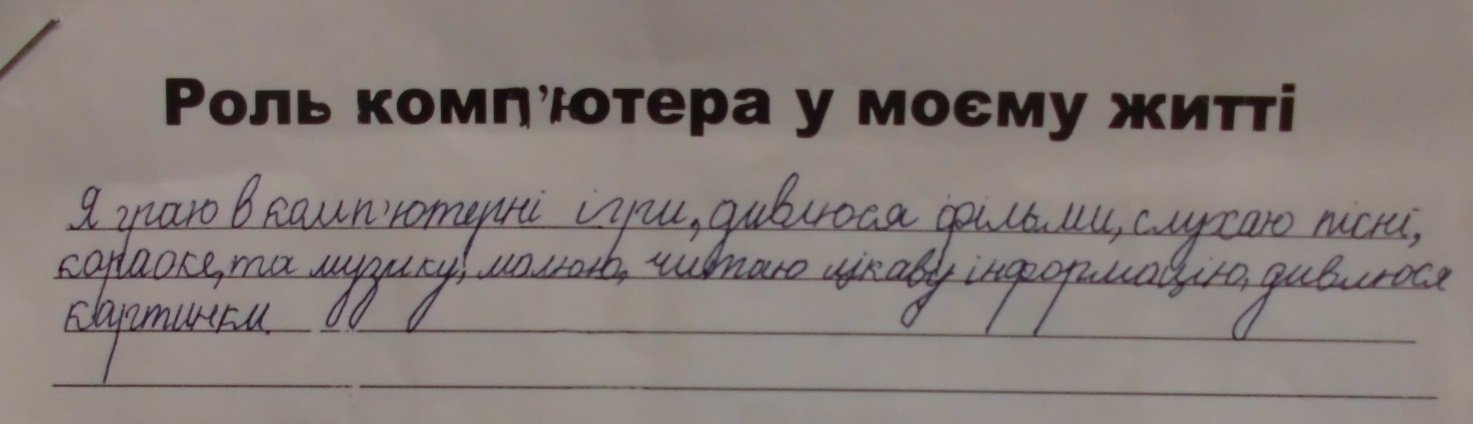 Роль комп'ютера у моєму житті
Я граю в комп'ютерні ігри, дивлюся фільми, слухаю пісні,
караоке, та музику, малюю, читаю цікаву інформацію, дивлюся
картинки.